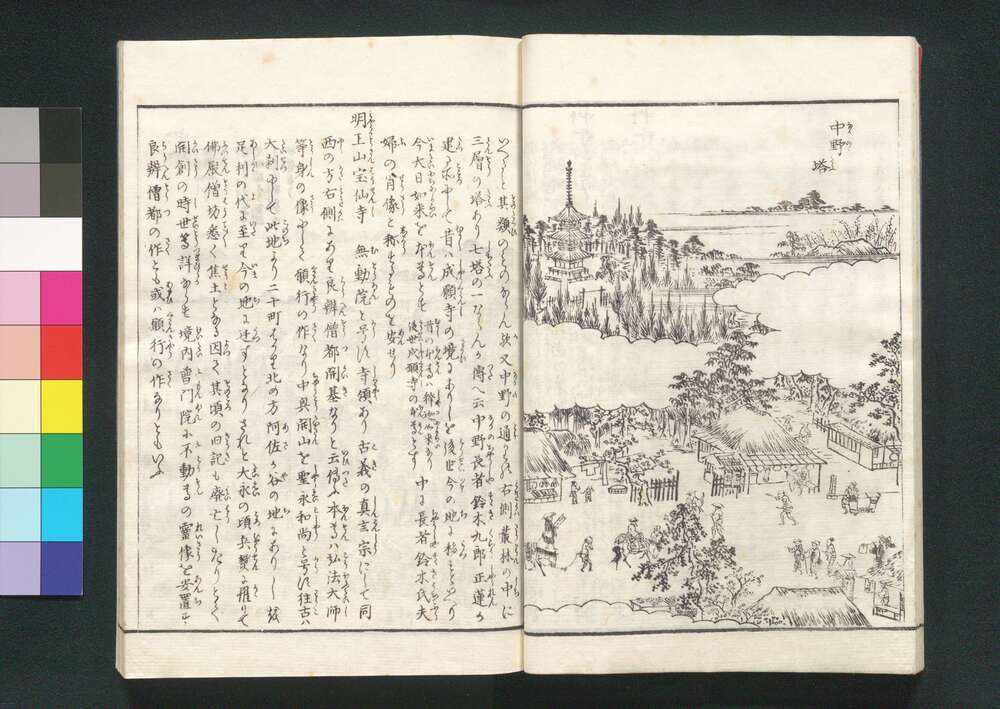 中野
塔
三層の塔あり七塔の一ならんか傳へ云中野長者鈴木九郎正蓮が
建る所にして昔は成願寺の境にありしを後世今の地に移すとなり
今大日如来を本尊とす
昔の本尊は釈迦如来なり
後世成願寺の本尊とす
中に長者鈴木氏夫
婦の肖像と称するものを安せり
明王山宝仙寺 無動院と号す寺領あり古義の真言宗にして同
西の方右側にあり良辨僧都開基なりと云傳ふ本尊は弘法大師
等身の像にして願行の作なり中興開山を聖永和尚と号す往古は
大刹にして此地より二十町はかり北の方阿佐か谷の地にありしか
足利の代に至り今の地に迁すとなりされと大永の頃兵燹に罹りて
佛殿僧坊悉く焦土となる因て其頃の旧記も廃亡したりとそ
開創の時世等詳ならす境内普門院に不動尊の靈像を安置す
良辨僧都の作とも或は願行の作なりともいふ